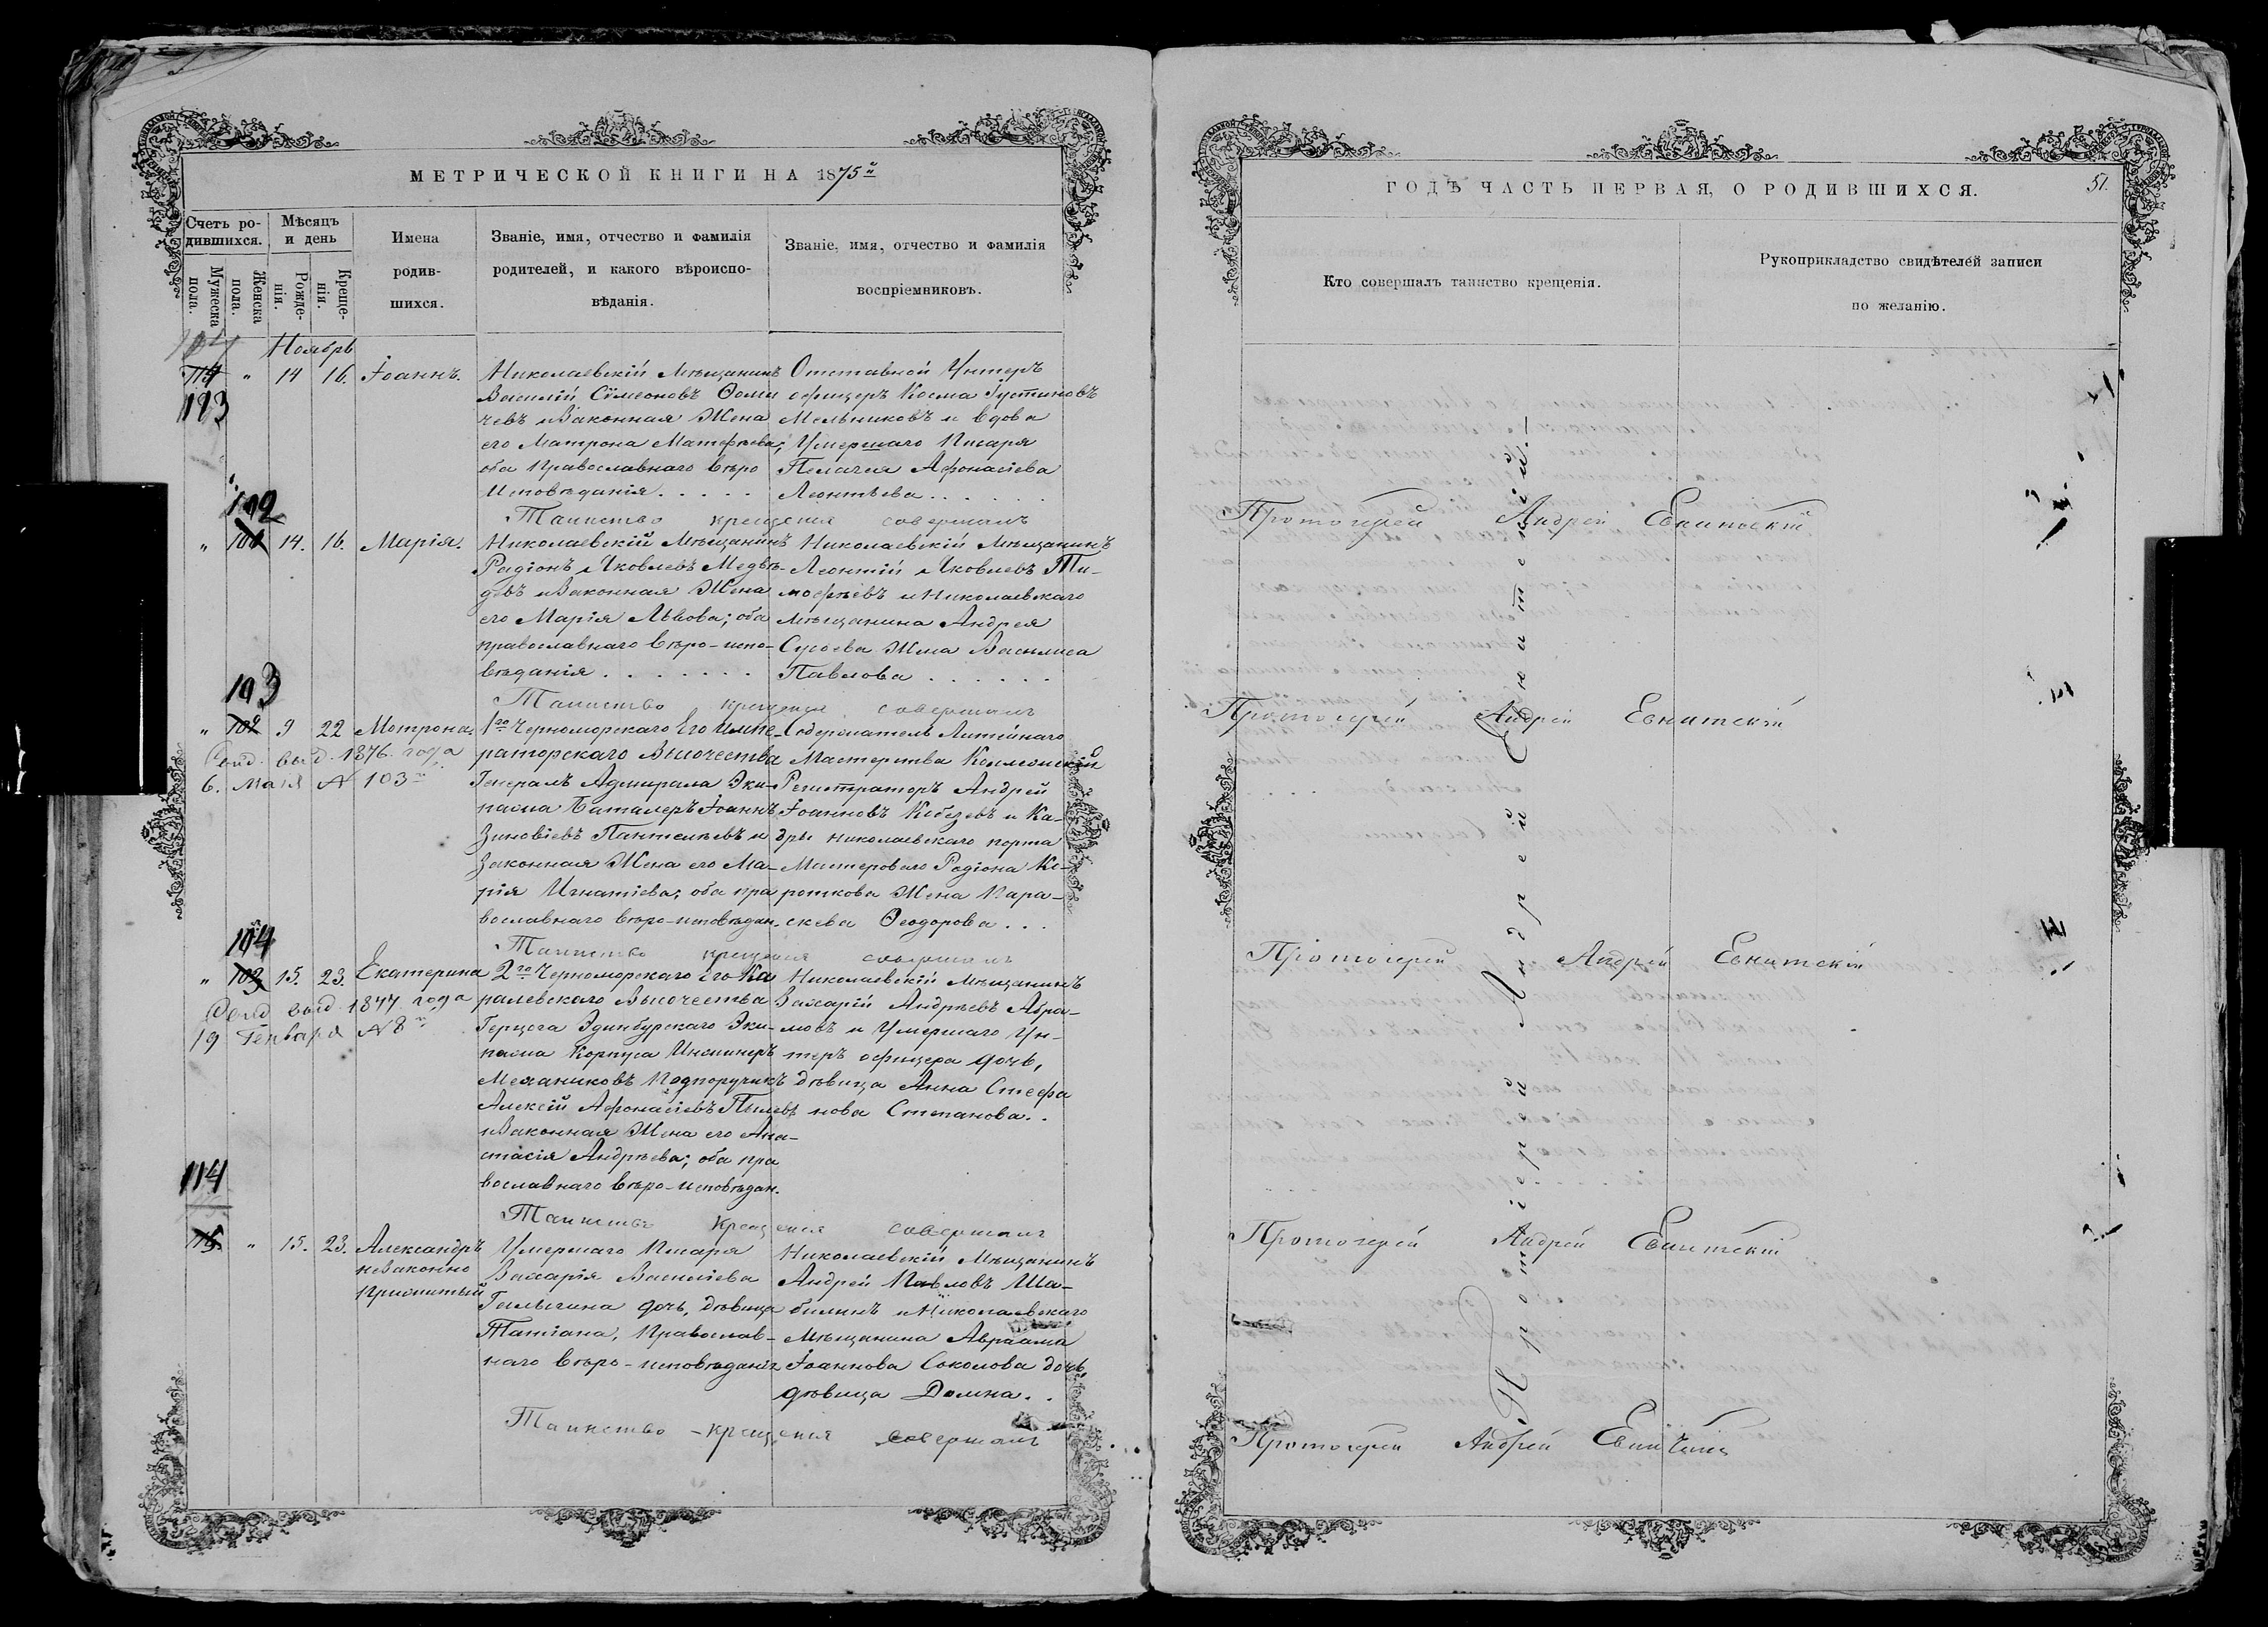 МЕТРИЧЕСКОЙ КНИГИ НА 1875й
Счетъ ро-
дившихся.
Мѣсяцъ
и день
Мужеска
пола.
Женска
пола.
Рожде-
нія.
Креще-
нія.
Имена
родив-
шихся.
Званіе, имя, отчество и фамилія
родителей, и какого вѣроиспо-
вѣданія.
Званіе, имя, отчество и фамилія
воспріемниковъ.
Ноябрь
113
" 14 16. Іоаннъ.
Николаевскій Мѣщанинъ
Василій Сѵмеоновъ Ѳоми
чевъ и Законная Жена
его Матрона Матѳѣева;
оба Православнаго вѣро
Исповѣданія. . . . .
Отставной Унтеръ
офицеръ Косма Іустиновъ
Мельниковъ и вдова
Умершаго Писаря
Пелагея Афонасіева
Леонтьева . . . . . .
Таинство крещенія совершалъ
102
" 14. 16. Марія.
Николаевскій Мѣщанинъ
Радіонъ Яковлевъ Медвѣ-
дѣвъ и Законная Жена
его Марія Львова; оба
православнаго вѣро-испо-
вѣданія . . . . . . .
Николаевскій Мѣщанинъ
Леонтій Яковлевъ Ти-
мофѣевъ и Николаевскаго
Мѣщанина Андрея
Сусоева Жена Василиса
Павлова . . . . . .
Таинство крещенія совершалъ
103
" 102 9 22 Мотрона.
Свид. выд. 1876. года
6. Мая № 103й
1го Черноморскаго Его Импе-
раторскаго Высочества
Генералъ Адмирала Эки-
пажа Баталеръ Іоаннъ
Зиновіевъ Пантелѣевъ и
Законная Жена его Ма-
рія Игнатіева; оба пра
вославнаго вѣро-исповѣдан.
Содержатель Литейнаго
Мастерства Коллежскій
Регистраторъ Андрей
Іоанновъ Кобезевъ и Ка-
дры николаевскаго порта
Мастероваго Радіона Ко-
роткова Жена Пара-
скева Ѳеодорова . . .
Таинство крещенія совершалъ
104
" 103 15. 23. Екатерина
Свид. выд. 1877 года
19 Генваря № 8й
2го Черноморскаго Его Ка
ралевскаго Высочества
Герцога Эдинбурскаго Эки-
пажа Корпуса Инжинеръ
Механиковъ Подпоручикъ
Алексій Афонасіевъ
и Законная Жена его Ана-
стасія Андрѣева; оба пра
вославнаго вѣро-исповѣдан.
Николаевскій Мѣщанинъ
Захарій Андрѣевъ Абра-
мовъ и Умершаго Ун-
теръ офицера дочь,
дѣвица Анна Стефа
нова Степанова. .
Таинство крещенія совершалъ
114
" 15. 23. Александръ
незаконно
прижитый
Умершаго Писаря
Захарія Василіева
дочь, дѣвица
Татіана, Православ-
наго вѣро-исповѣданія
Николаевскій Мѣщанинъ
Андрей Павловъ Ша-
билинъ и Николаевскаго
Мѣщанина Авраама
Іоаннова Соколова дочь
дѣвица Домна. .
Таинство крещенія совершалъ
ГОДЪ ЧАСТЬ ПЕРВАЯ, О РОДИВШИХСЯ.
51.
Кто совершалъ таинство крещенія.
Рукоприкладство свидѣтелей записи
по желанію.
Протоіерей Андрей Евнитскій
Протоіерей Андрей Евнитскій
Протоіерей Андрей Евнитскій
Протоіерей Андрей Евнитскій
Протоіерей Андрей Евнитскій
Протоіерей Андрей Евнитскій.